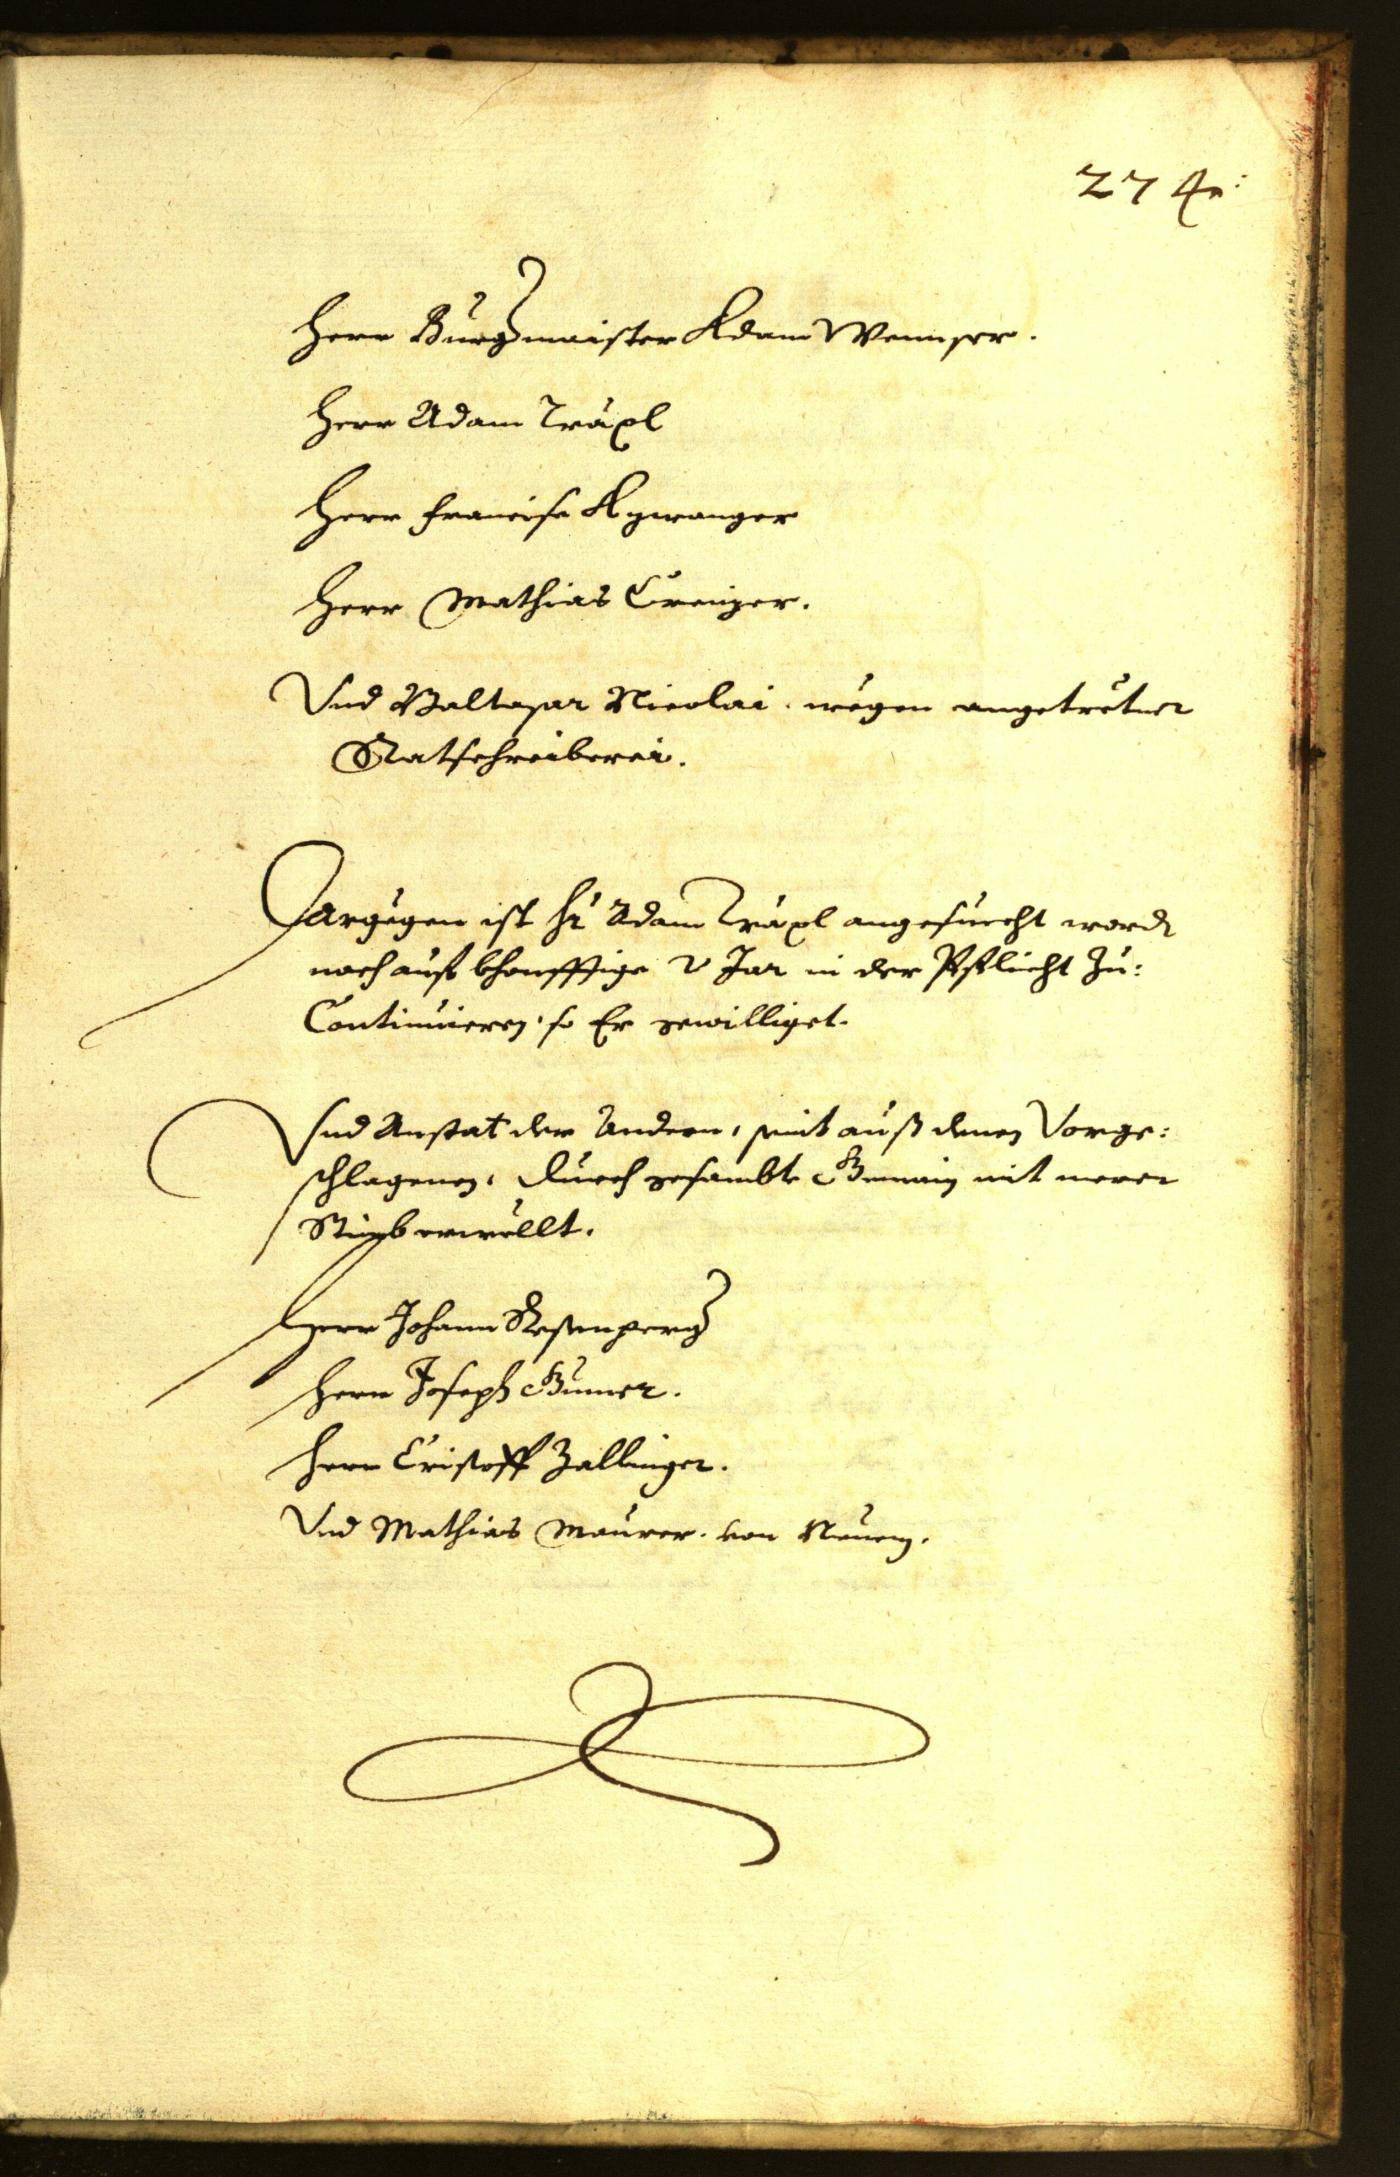 274:
Herr Burgmaister Adam Wennser.
Herr Adam Träxl
Herr Francisc Agwanger
Herr Mathias Creizer.
Und Baltasar Nicolai. wegen angetretner
Statschreiberei.
Hargegen ist Hr Adam Träxl angesuecht word
noch auf khonfftige 2 Jar in der Pflicht zu:
Continuieren, so Er gewilliget.
Und Anstat der Andern, seint auß denen Vorge:
schlagenen, durch gesambte Gemain mit merer
Stimb erwöllt.
Herr Johann Rosenperg
Herr Joseph Gumer.
Herr Cristoff Zallinger.
Und Mathias Maurer. von Neuem.